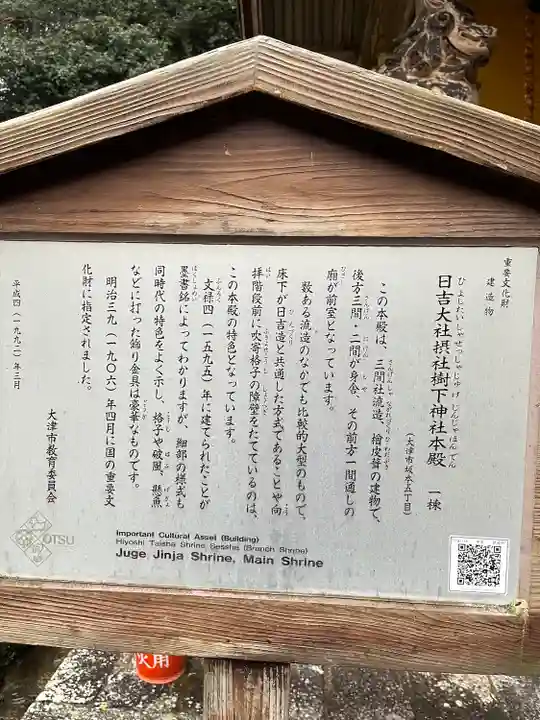 重要文化財
建造物
日吉大社摂社樹下神社本殿　一棟
ひよしたいしゃせっしゃじゅげじんじゃほんでん
（大津市坂本五丁目）
この本殿は、三間社流造、檜皮葺の建物で、
後方三間・二間が身舎、その前方一間通しの
廂が前室となっています。
数ある流造のなかでも比較的大型のもので、
床下が日吉造と共通した方式であることや向
拝階段前に吹寄格子の障壁をたてているのは、
この本殿の特色となっています。
文禄四（一五九五）年に建てられたことが
墨書銘によってわかりますが、細部の様式も
同時代の特色をよく示し、格子や破風、懸魚
などに打った飾り金具は豪華なものです。
明治三九（一九〇六）年四月に国の重要文
化財に指定されました。
平成四（一九九二）年三月
大津市教育委員会
OTSU
Important Cultural Asset (Building)
Hiyoshi Taisha Shrine Sessha (Branch Shrine)
Juge Jinja Shrine, Main Shrine
火用